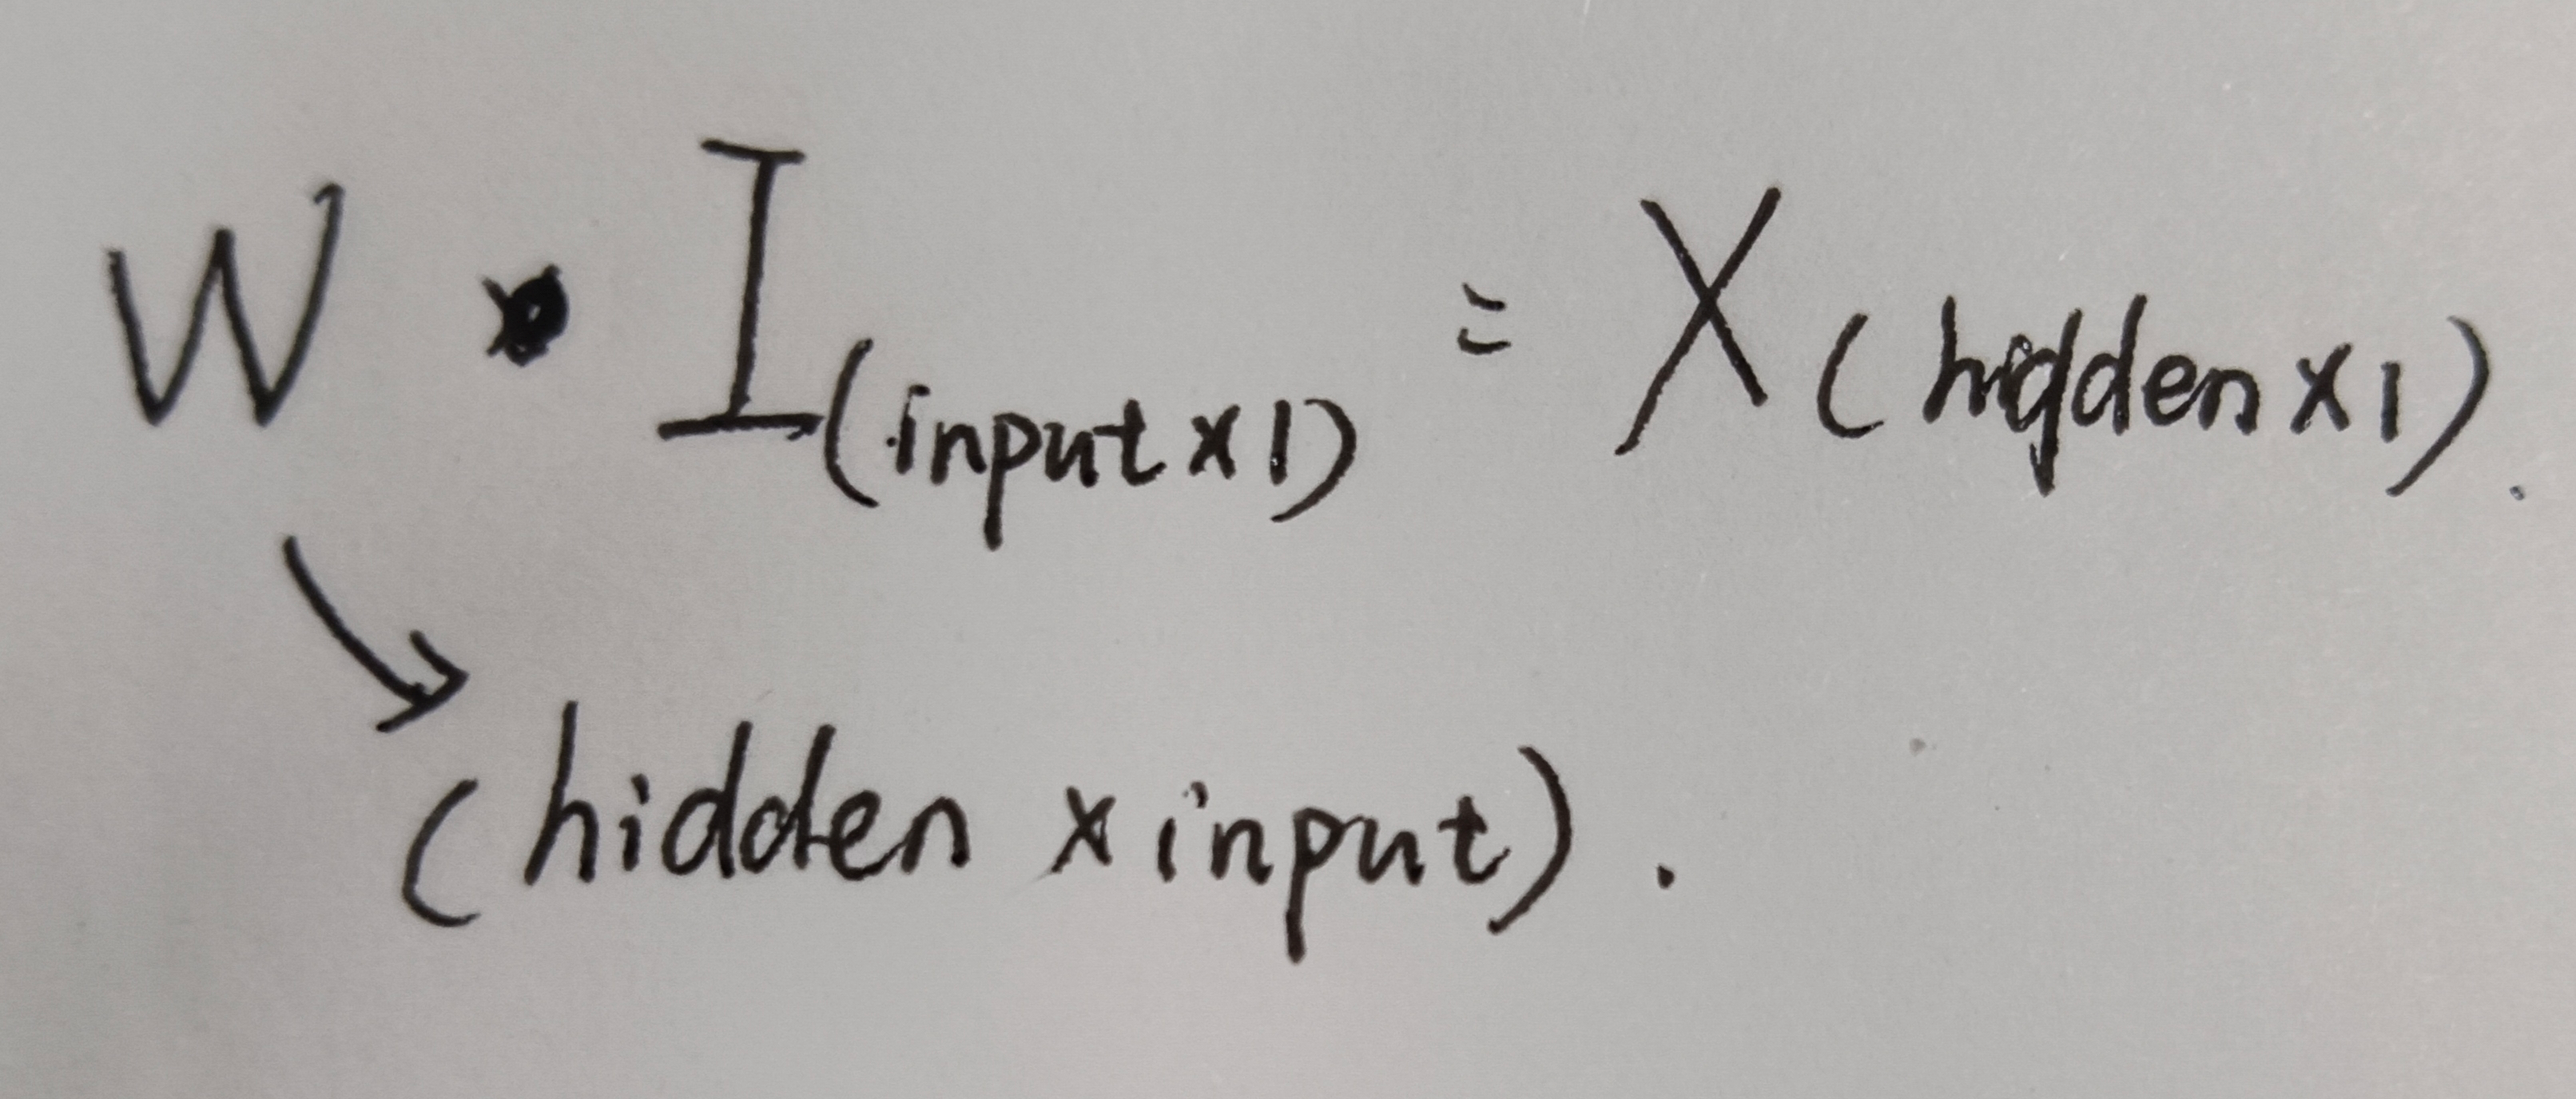 W • I(input x 1) = X (hidden x 1).
(hidden x input).